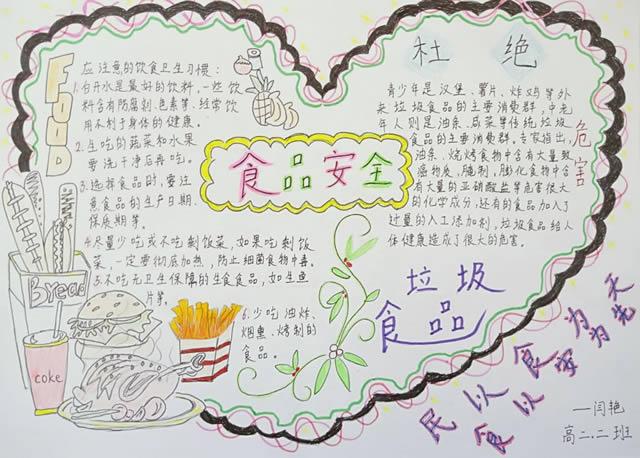 FOOD
应注意的饮食卫生习惯：
1.白开水是最好的饮料，一些饮
料含有防腐剂、色素等，经常饮
用不利于身体的健康。
2.生吃的蔬菜和水果
要洗干净后再吃。
3.选择食品时，要注
意食品的生产日期、
保质期等。
4.尽量少吃或不吃剩饭菜，如果吃剩饭
菜，一定要彻底加热，防止细菌食物中毒。
5.不吃无卫生保障的生食食品，如生鱼
片等。
6.少吃油炸、
烟熏、烤制的
食品。
Bread
coke
食品安全
杜绝
青少年是汉堡、薯片、炸鸡等外
来垃圾食品的主要消费群，中老
年人则是油条、咸菜等传统垃圾
食品的主要消费群。专家指出，
油条、烧烤食物中含有大量致
癌物质，腌制、膨化食物中含
有大量的亚硝酸盐等危害很大
的化学成分，还有的食品加入了
过量的人工添加剂，垃圾食品给人
体健康造成了很大的危害。
危害
垃圾
食品
民以食为天
食以安为先
一闫艳
高二.二班